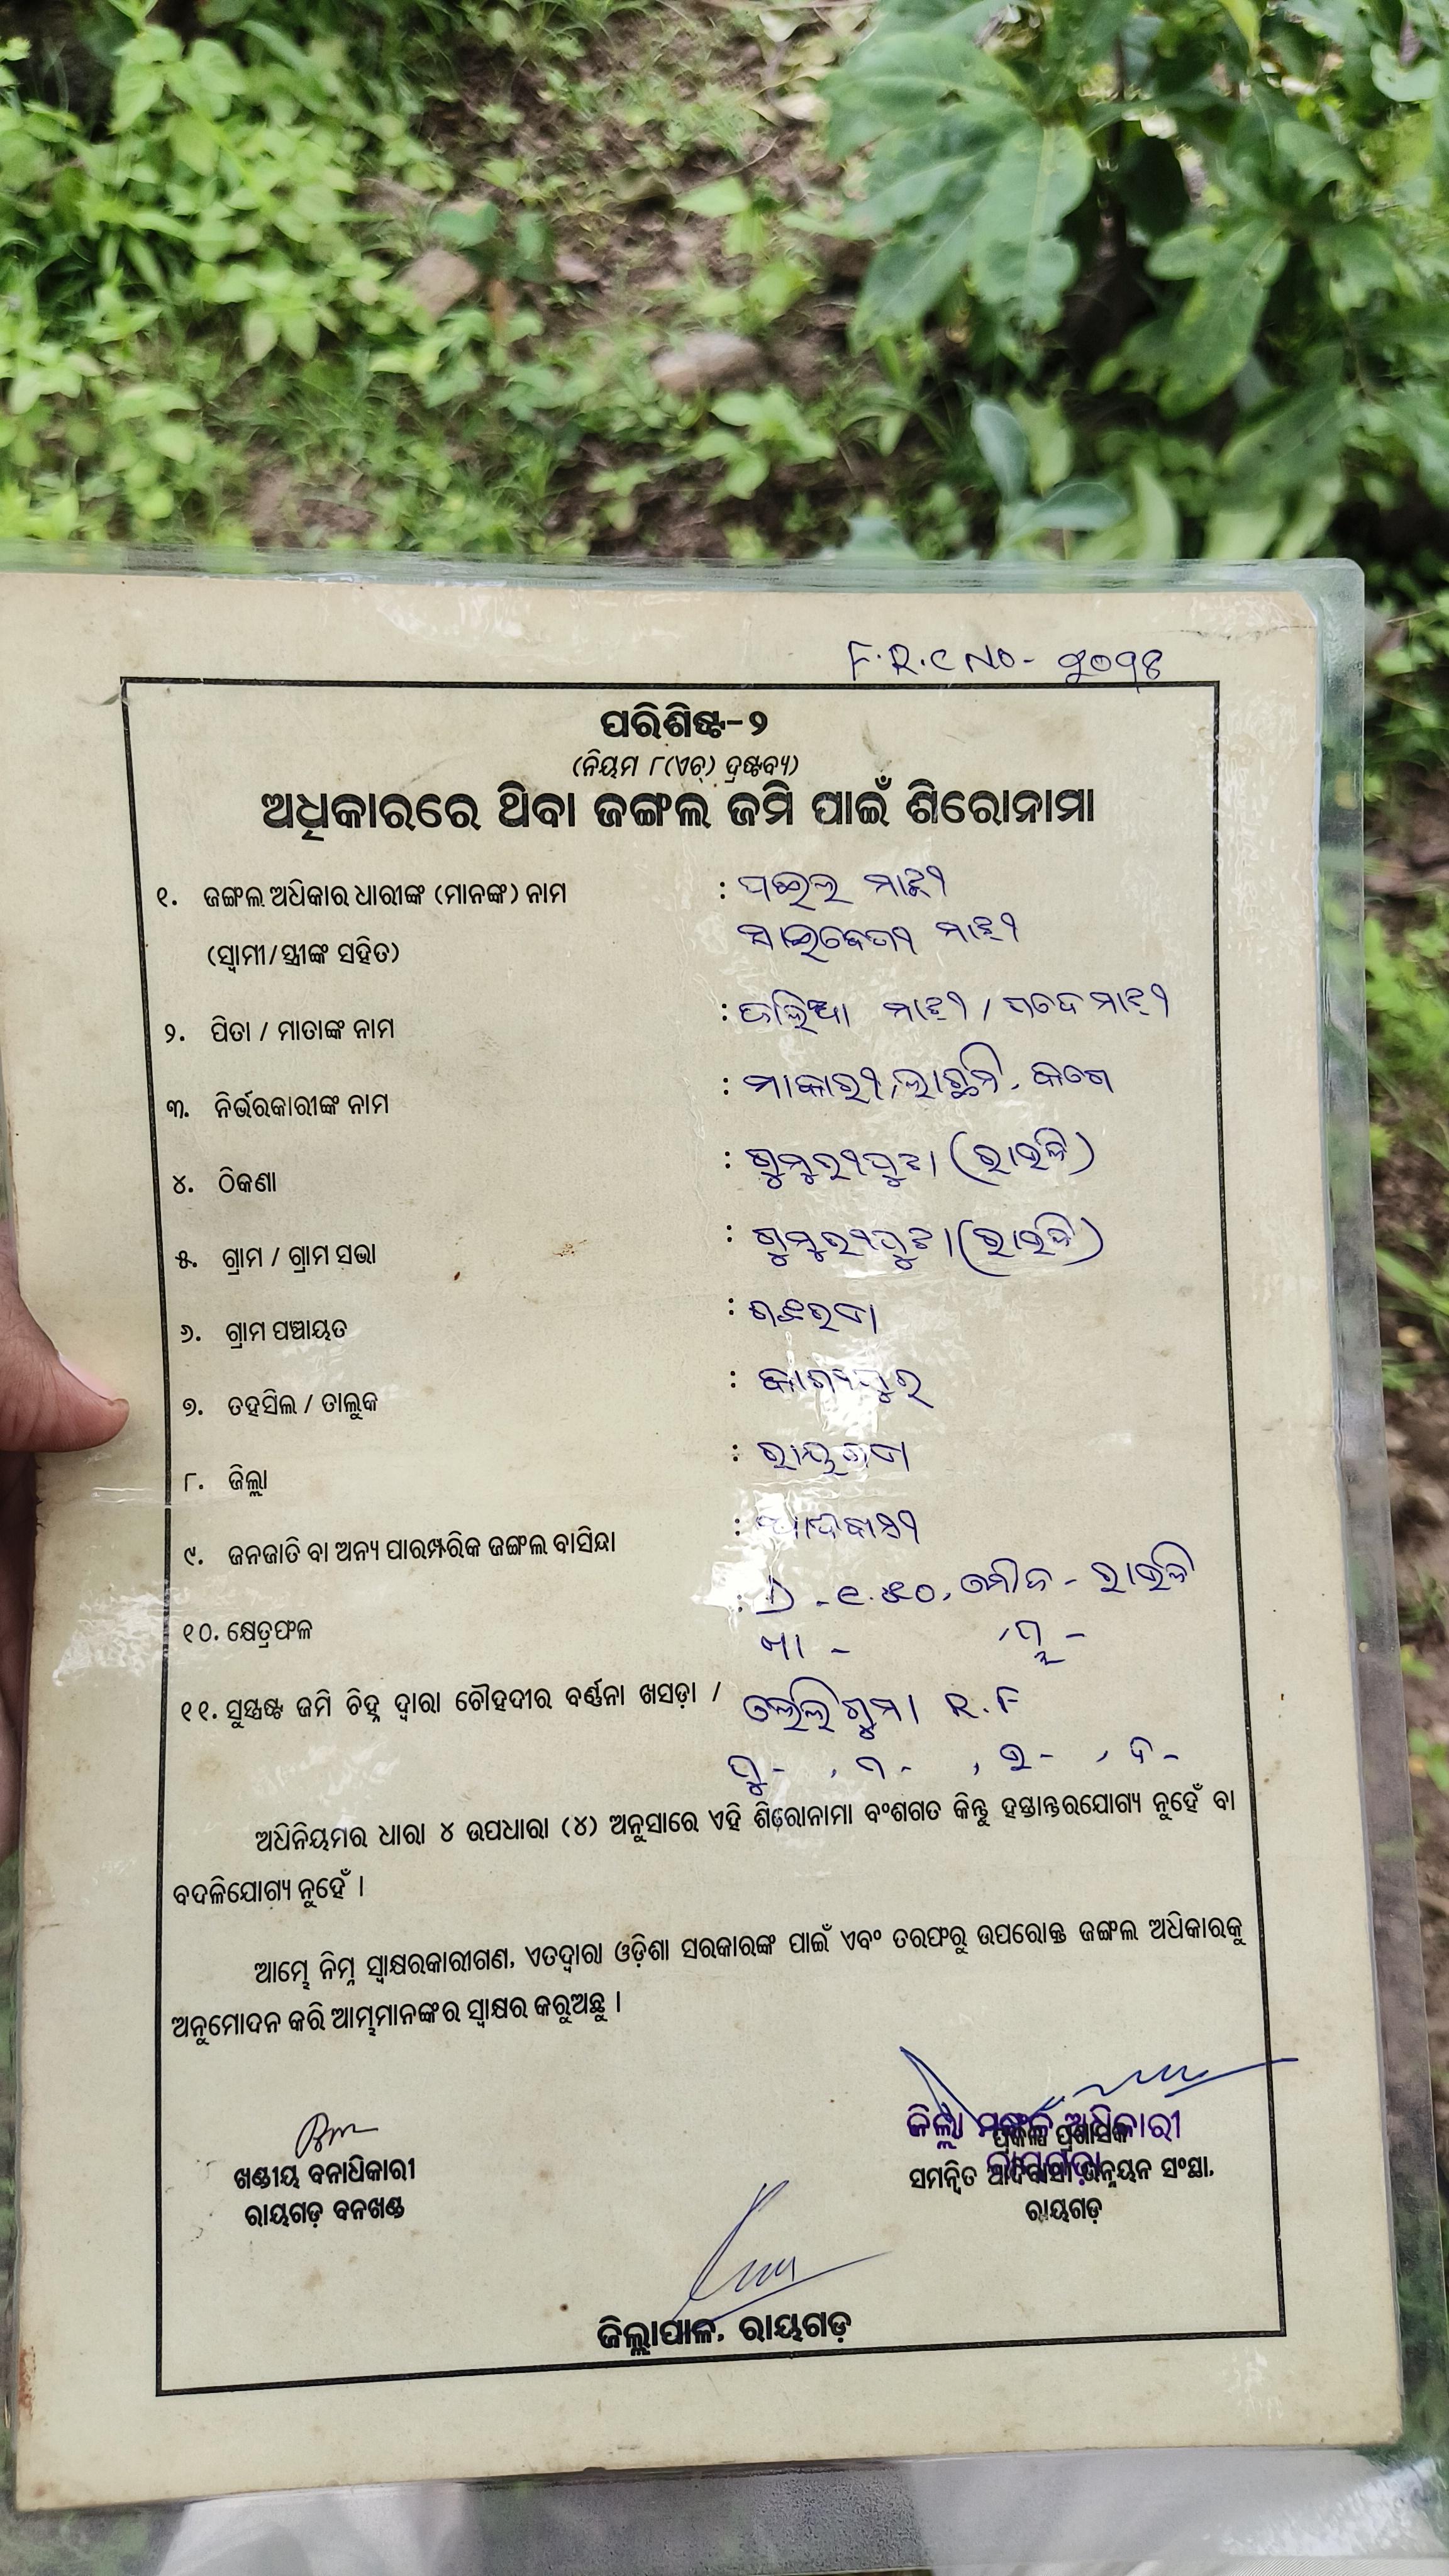 F.R.C NO-
ପରିଶିଷ୍ଟ-୨
(ନିୟମ ୮(ଏଚ୍) ଦ୍ରଷ୍ଟବ୍ୟ)
ଅଧିକାରରେ ଥିବା ଜଙ୍ଗଲ ଜମି ପାଇଁ ଶିରୋନାମା
୧. ଜଙ୍ଗଲ ଅଧିକାର ଧାରୀଙ୍କ (ମାନଙ୍କ) ନାମ : ମାଝୀ
(ସ୍ୱାମୀ/ସ୍ତ୍ରୀଙ୍କ ସହିତ) ମାଝୀ
୨. ପିତା / ମାତାଙ୍କ ନାମ : ମାଝୀ /
୩. ନିର୍ଭରକାରୀଙ୍କ ନାମ :
୪. ଠିକଣା : (ରାଉଳି)
୫. ଗ୍ରାମ / ଗ୍ରାମ ସଭା : (ରାଉଳି)
୬. ଗ୍ରାମ ପଞ୍ଚାୟତ :
୭. ତହସିଲ / ତାଲୁକ : କାଶୀପୁର
୮. ଜିଲ୍ଲା : ରାୟଗଡା
୯. ଜନଜାତି ବା ଅନ୍ୟ ପାରମ୍ପରିକ ଜଙ୍ଗଲ ବାସିନ୍ଦା : ଆଦିବାସୀ
୧୦. କ୍ଷେତ୍ରଫଳ : ମୌଜା - ରାଉଳି
ଖା - , ପ୍ଲ -
୧୧. ସୁସ୍ପଷ୍ଟ ଜମି ଚିହ୍ନ ଦ୍ୱାରା ଚୌହଦୀର ବର୍ଣ୍ଣନା ଖସଡ଼ା / R.F
ପୂ - , ପ - , ଉ - , ଦ -
ଅଧିନିୟମର ଧାରା ୪ ଉପଧାରା (୪) ଅନୁସାରେ ଏହି ଶିରୋନାମା ବଂଶଗତ କିନ୍ତୁ ହସ୍ତାନ୍ତରଯୋଗ୍ୟ ନୁହେଁ ବା
ବଦଳିଯୋଗ୍ୟ ନୁହେଁ ।
ଆମ୍ଭେ ନିମ୍ନ ସ୍ୱାକ୍ଷରକାରୀଗଣ, ଏତଦ୍ୱାରା ଓଡ଼ିଶା ସରକାରଙ୍କ ପାଇଁ ଏବଂ ତରଫରୁ ଉପରୋକ୍ତ ଜଙ୍ଗଲ ଅଧିକାରକୁ
ଅନୁମୋଦନ କରି ଆମ୍ଭମାନଙ୍କର ସ୍ୱାକ୍ଷର କରୁଅଛୁ ।
ଜିଲ୍ଲା ମଙ୍ଗଳ ଅଧିକାରୀ
ପ୍ରକଳ୍ପ ପ୍ରଶାସକ
ରାୟଗଡ଼ା
ଖଣ୍ଡୀୟ ବନାଧିକାରୀ
ସମନ୍ୱିତ ଆଦିବାସୀ ଉନ୍ନୟନ ସଂସ୍ଥା,
ରାୟଗଡ଼ ବନଖଣ୍ଡ
ରାୟଗଡ଼
ଜିଲ୍ଲାପାଳ, ରାୟଗଡ଼